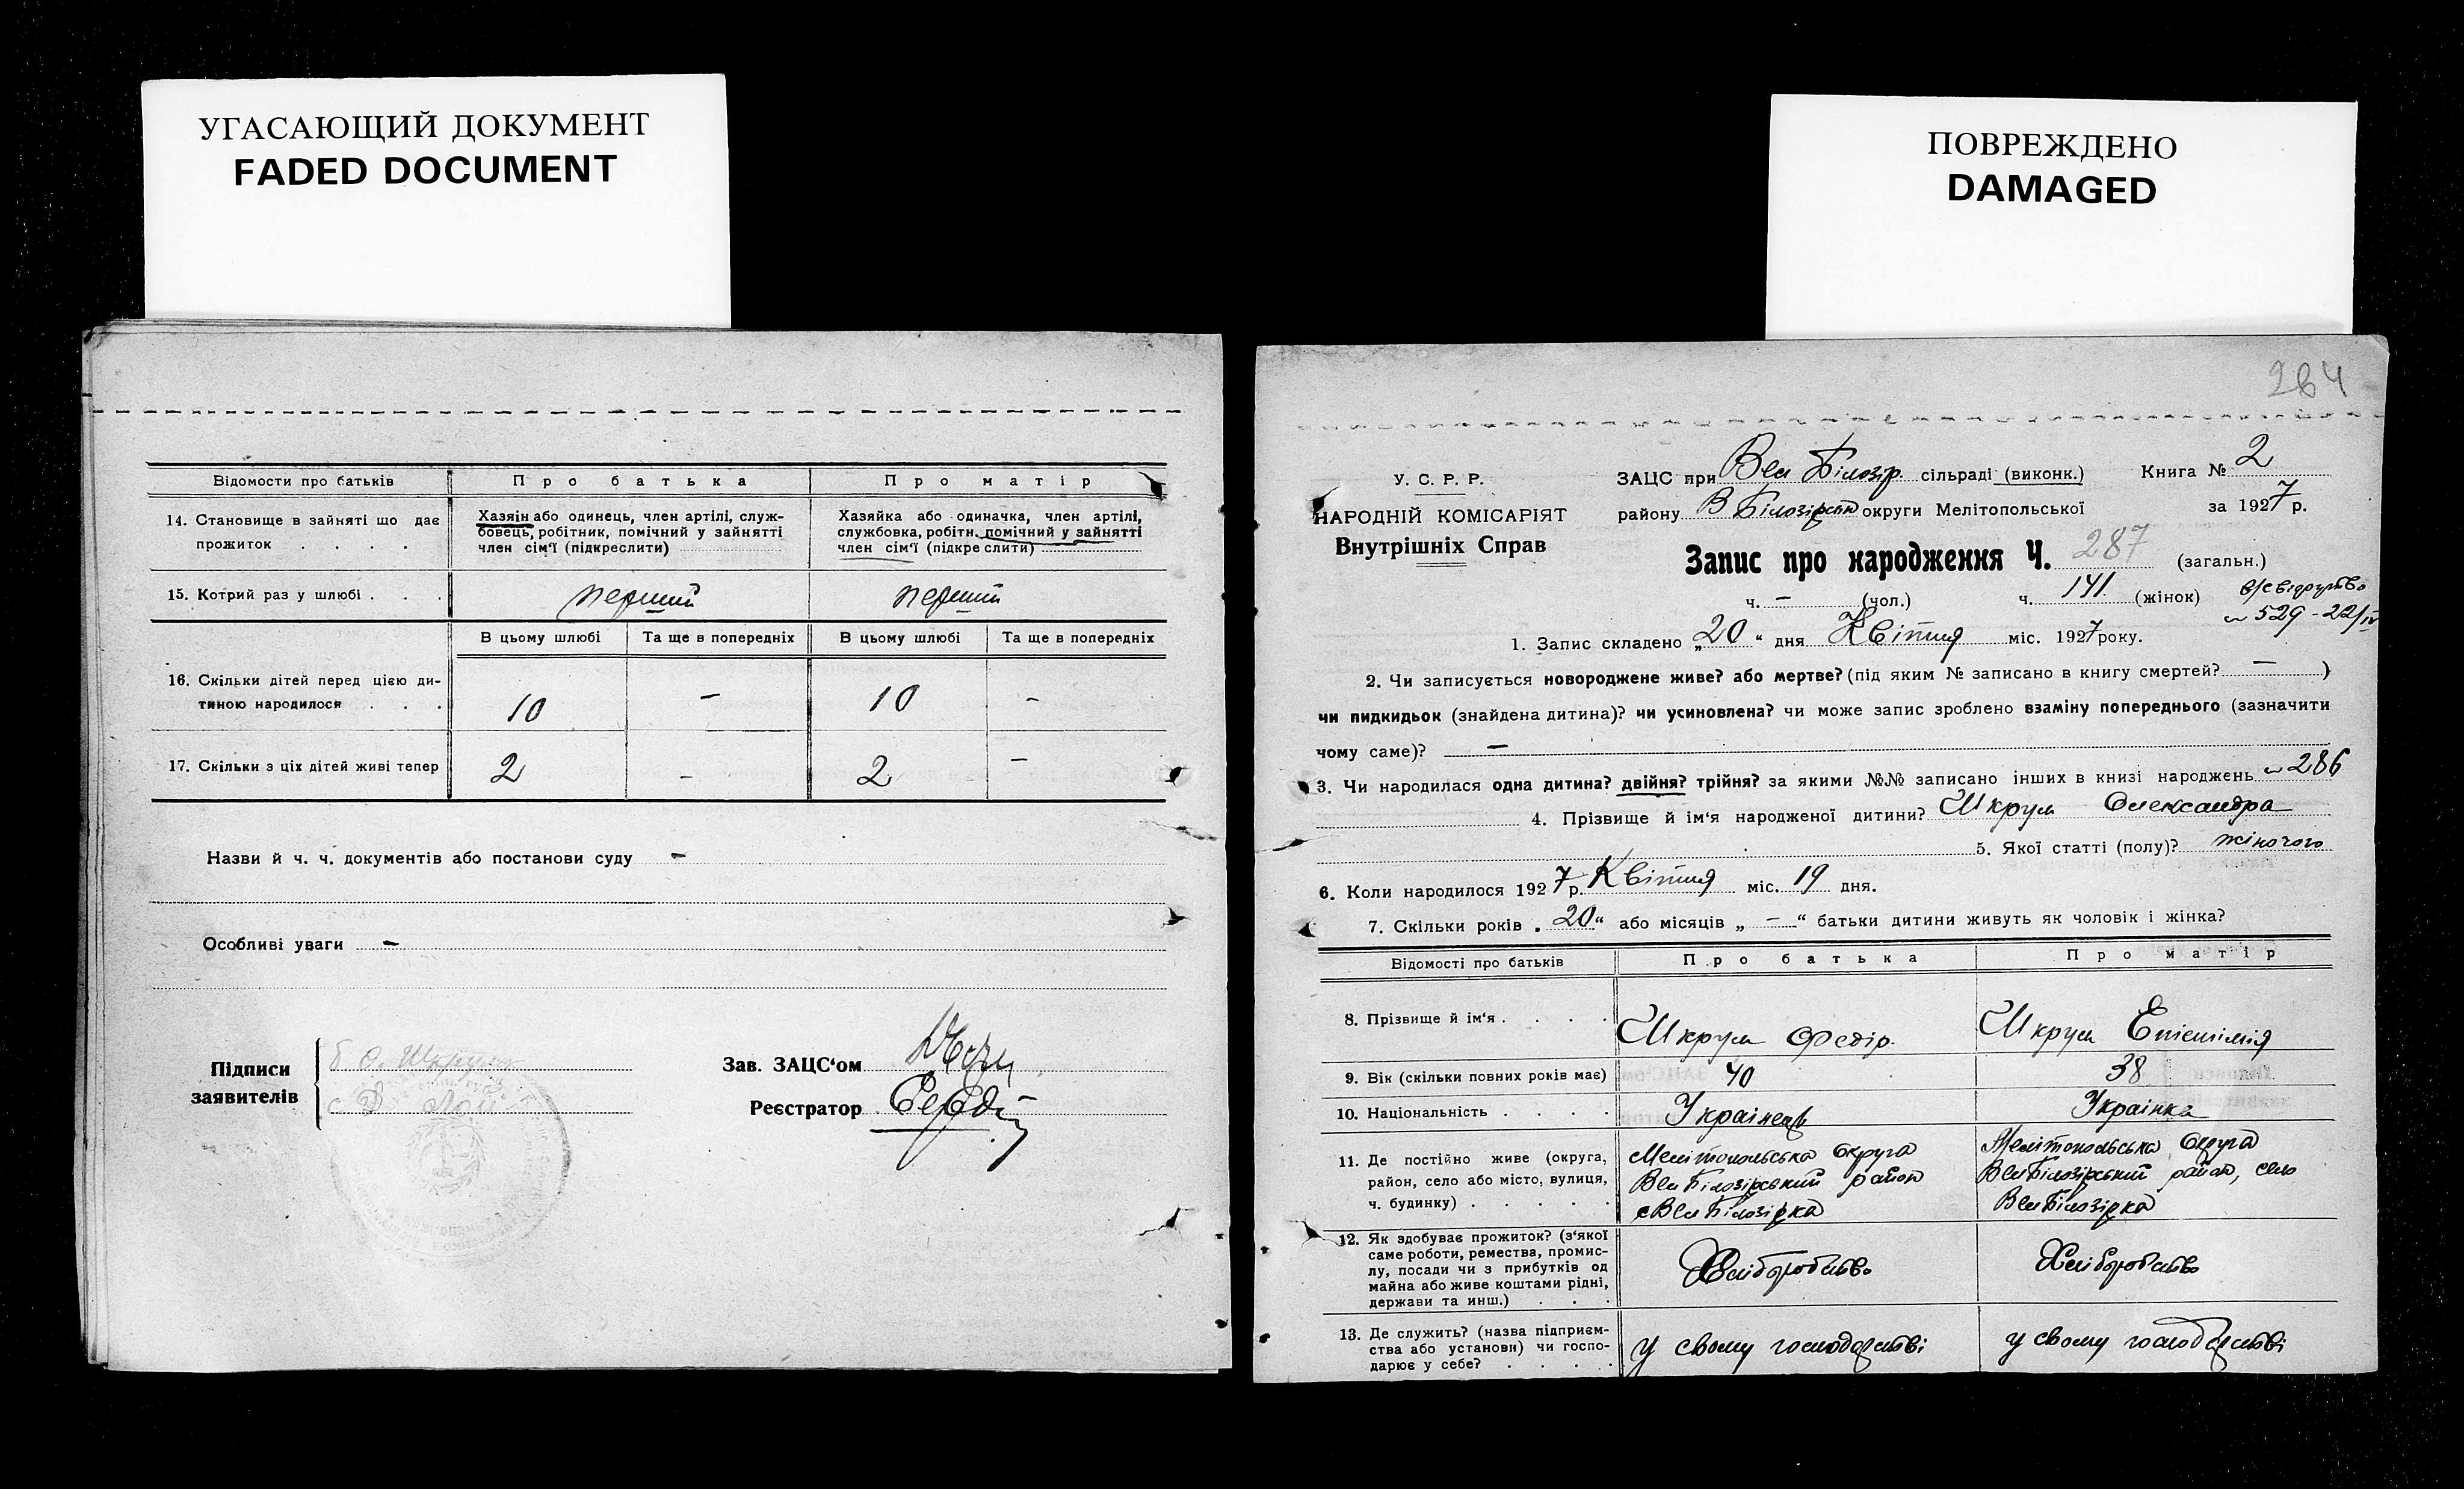 УГАСАЮЩИЙ ДОКУМЕНТ
FADED DOCUMENT
ПОВРЕЖДЕНО
DAMAGED
Відомости про батьків
Про батька
Про матір
14. Становище в зайняті що дає
прожиток . . . .
Хазяін або одинець, член артілі, служ-
бовець, робітник, помічний у зайнятті
член сім'ї (підкреслити)
Хазяйка або одиначка, член артілі,
службовка, робітн. помічний у зайнятті
член сім'ї (підкреслити)
15. Котрий раз у шлюбі . . .
перший
перший
В цьому шлюбі
Та ще в попередніх
В цьому шлюбі
Та ще в попередніх
16. Скільки дітей перед цією ди-
тиною народилося . . .
10 – 10 –
17. Скільки з ціх дітей живі тепер
2 – 2 –
Назви й ч. ч. документів або постанови суду –
Особливі уваги –
Підписи
заявителів
Зав. ЗАЦС'ом
Реєстратор
264
У. С. Р. Р.
НАРОДНІЙ КОМІСАРІЯТ
Внутрішніх Справ
ЗАЦС при Вел Білозір. сільраді (виконк.) Книга № 2
району В Білозірськ округи Мелітопольської за 1927 р.
Запис про народження Ч. 287 (загальн.)
ч. – (чол.) ч. 141 (жінок)
529 - 22/IV
1. Запис складено „20“ дня Квітня міс. 1927 року.
2. Чи записується новороджене живе? або мертве? (під яким № записано в книгу смертей? – )
чи пидкидьок (знайдена дитина)? чи усиновлена? чи може запис зроблено взаміну попереднього (зазначити
чому саме)? –
3. Чи народилася одна дитина? двійня? трійня? за якими №№ записано інших в книзі народжень 286
4. Прізвище й ім'я народженої дитини? Шкрум Олександра
5. Якої статті (полу)? жіночого
6. Коли народилося 1927 р. Квітня міс. 19 дня.
7. Скільки років „20“ або місяців „ – “ батьки дитини живуть як чоловік і жінка?
Відомості про батьків
Про батька
Про матір
8. Прізвище й ім'я . . . .
Шкрум Федір.
Шкрум
9. Вік (скільки повних років має)
40
38
10. Національність . . . .
Українець
Українка
11. Де постійно живе (округа,
район, село або місто, вулиця,
ч. будинку) . . . . .
Мелітопольська округа
Вел Білозірський район
с Вел Білозірка
Мелітопольська округа
Вел Білозірський район, село
Вел Білозірка
12. Як здобуває прожиток? (з'якої
саме роботи, ремества, промис-
лу, посади чи з прибутків од
майна або живе коштами рідні,
держави та инш.) . . .
Хліборобство
Хліборобство
13. Де служить? (назва підприєм-
ства або установи) чи госпо-
дарює у себе? . . . .
у свому господарстві
у свому господарстві